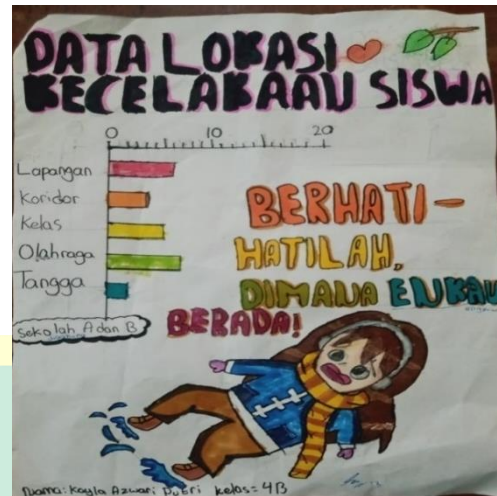 DATA LOKASI
KECELAKAAN SISWA
0 10 20
Lapangan
Koridor
Kelas
Olahraga
Tangga
Sekolah A dan B
BERHATI-
HATILAH,
DIMANA ENKAU
BERADA!
Nama: Kayla Azwari Putri kelas= 4B